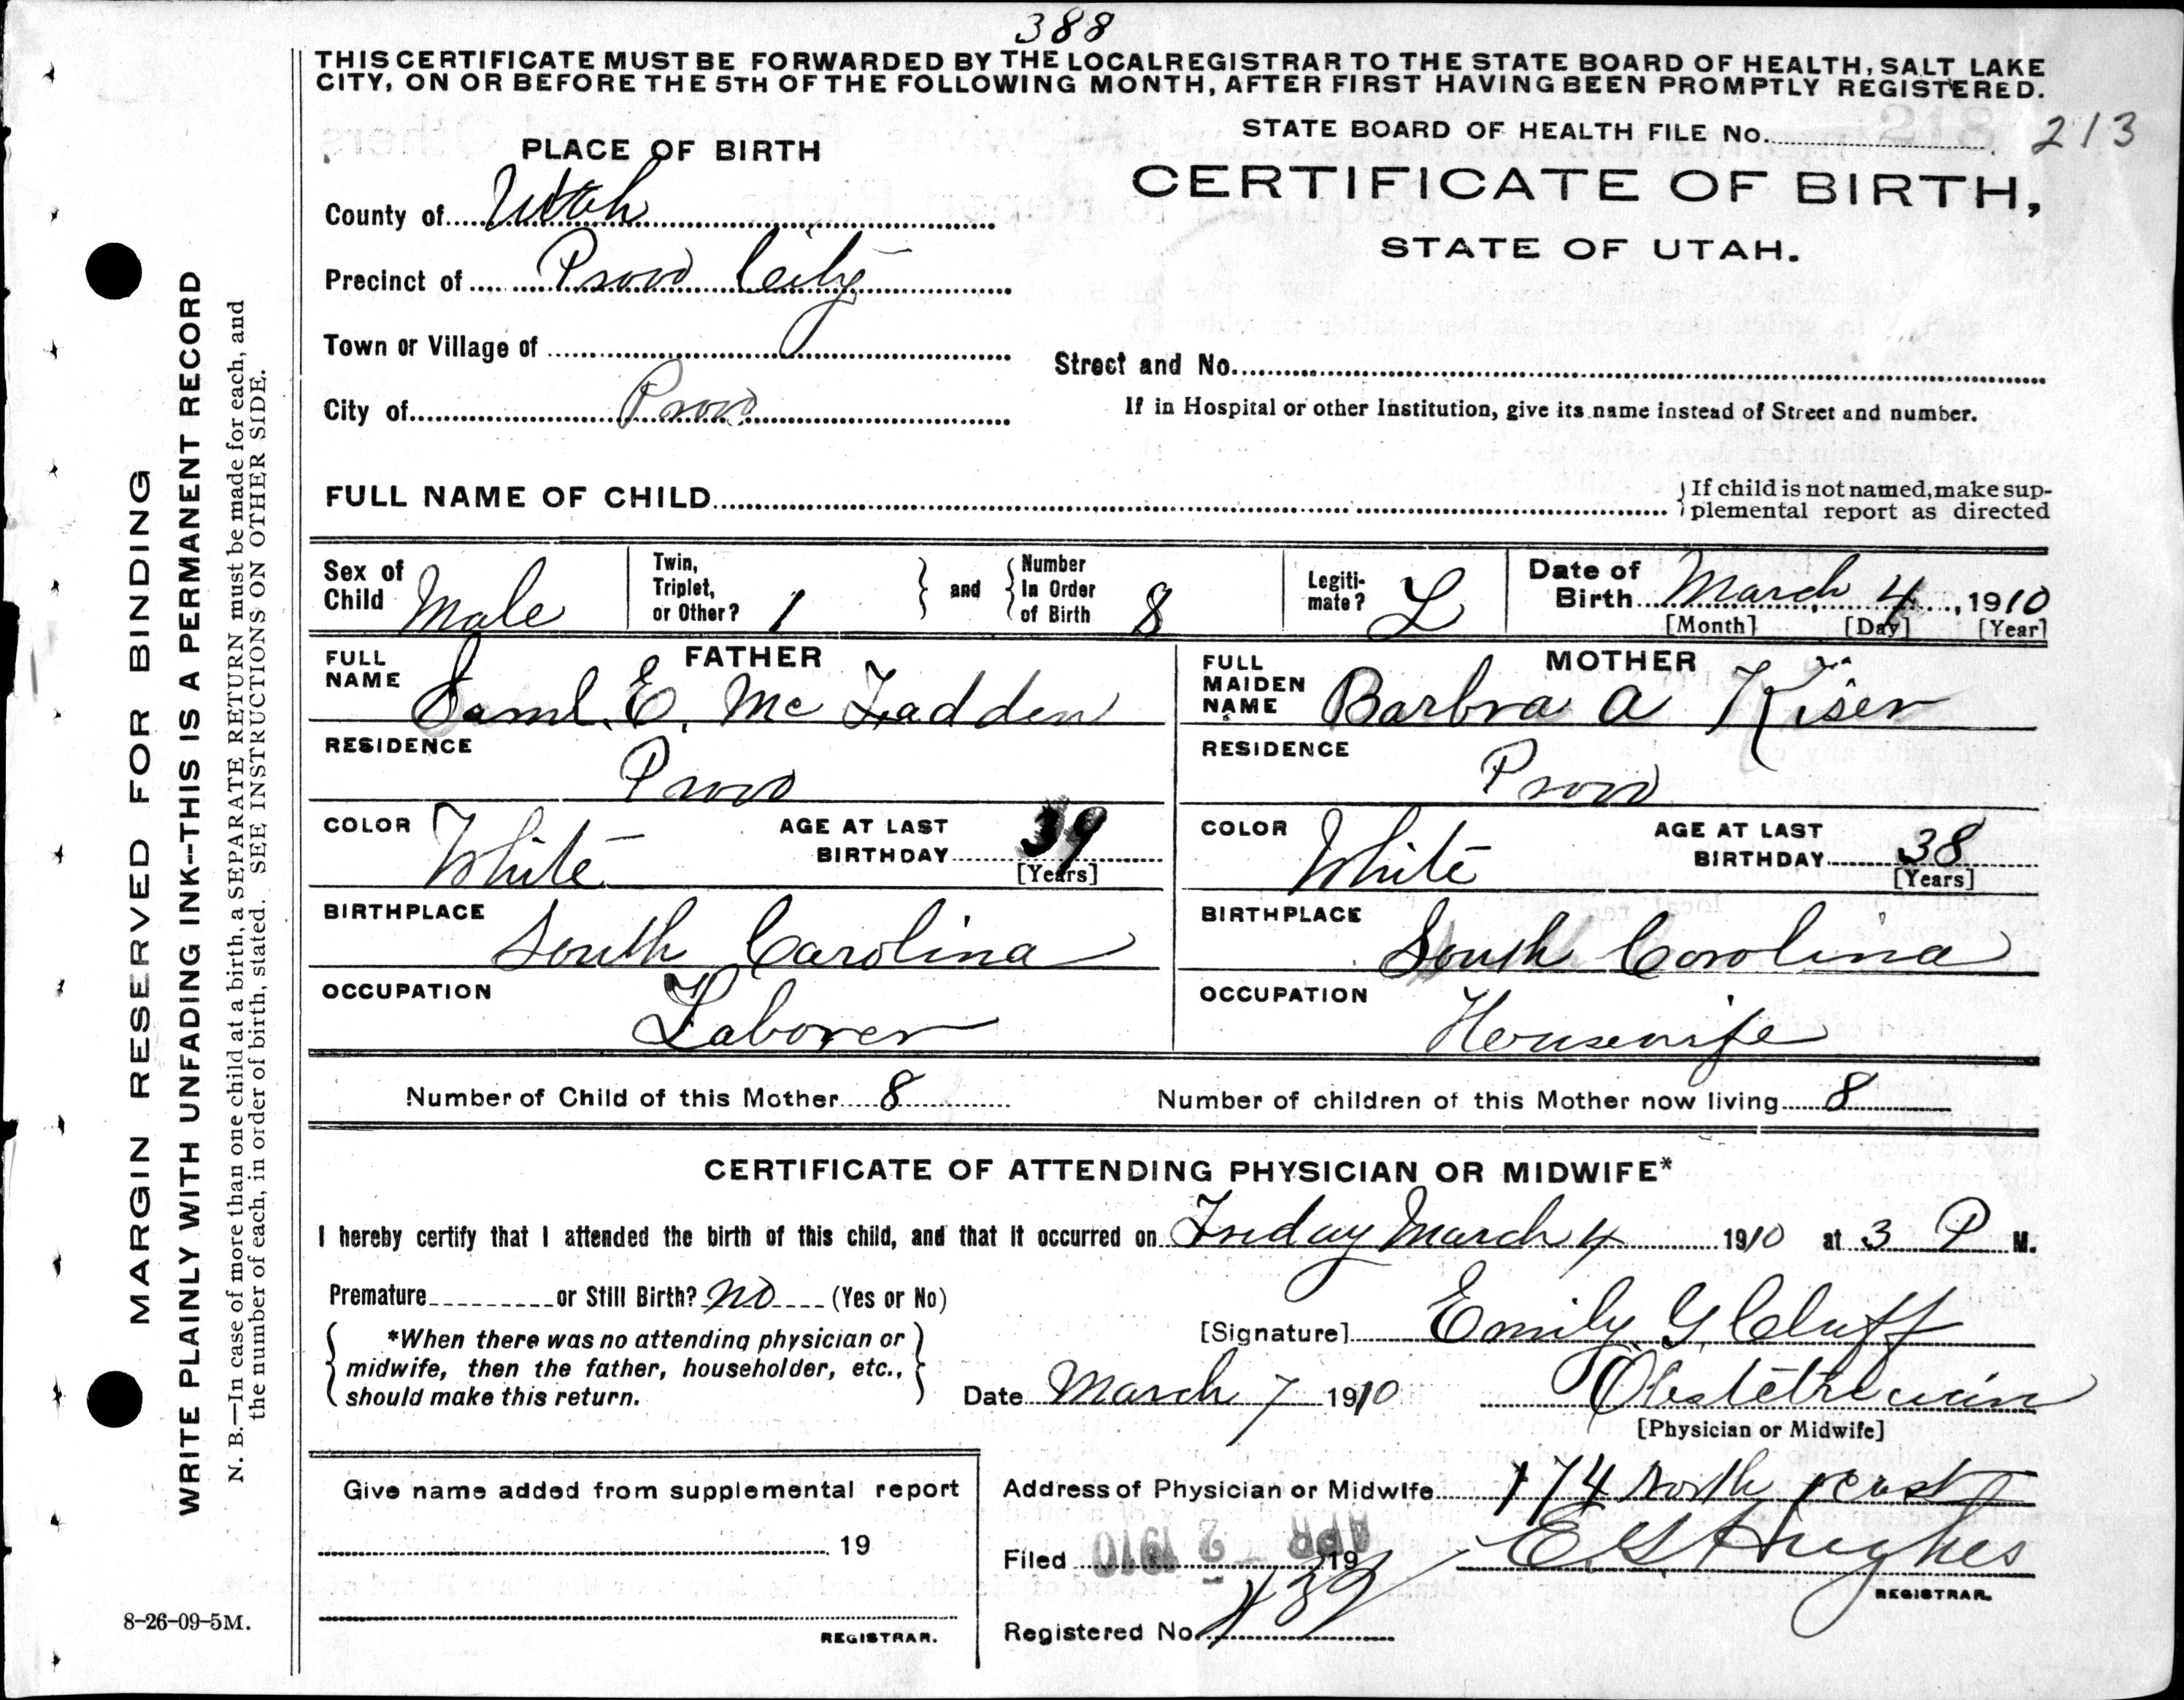 388
THIS CERTIFICATE MUST BE FORWARDED BY THE LOCAL REGISTRAR TO THE STATE BOARD OF HEALTH, SALT LAKE
CITY, ON OR BEFORE THE 5TH OF THE FOLLOWING MONTH, AFTER FIRST HAVING BEEN PROMPTLY REGISTERED.
STATE BOARD OF HEALTH FILE No. 213
PLACE OF BIRTH
CERTIFICATE OF BIRTH,
STATE OF UTAH.
County of Utah
Precinct of Provo City
Town or Village of
Street and No.
City of Provo
If in Hospital or other Institution, give its name instead of Street and number.
FULL NAME OF CHILD
If child is not named, make sup-
plemental report as directed
Sex of Child Male
Twin, Triplet, or Other? 1
and
Number In Order of Birth 8
Legiti-mate? L
Date of Birth March 4, 1910
[Month] [Day] [Year]
FATHER
FULL NAME Saml. E. McFadden
RESIDENCE Provo
COLOR White
AGE AT LAST BIRTHDAY 39
[Years]
BIRTHPLACE South Carolina
OCCUPATION Laborer
MOTHER
FULL MAIDEN NAME Barbra A Kiser
RESIDENCE Provo
COLOR White
AGE AT LAST BIRTHDAY 38
[Years]
BIRTHPLACE South Carolina
OCCUPATION Housewife
Number of Child of this Mother 8
Number of children of this Mother now living 8
CERTIFICATE OF ATTENDING PHYSICIAN OR MIDWIFE*
I hereby certify that I attended the birth of this child, and that it occurred on Friday March 4 1910 at 3 P M.
Premature or Still Birth? no (Yes or No)
*When there was no attending physician or
midwife, then the father, householder, etc.,
should make this return.
[Signature] Emily G Cluff
Date March 7 1910
Obstetrician
[Physician or Midwife]
Give name added from supplemental report
19
REGISTRAR.
Address of Physician or Midwife 174 North 1 East
Filed APR - 2 1910 19
E G Hughes
REGISTRAR.
Registered No. 139
MARGIN RESERVED FOR BINDING
WRITE PLAINLY WITH UNFADING INK--THIS IS A PERMANENT RECORD
N. B.—In case of more than one child at a birth, a SEPARATE RETURN must be made for each, and
the number of each, in order of birth, stated. SEE INSTRUCTIONS ON OTHER SIDE.
8-26-09-5M.